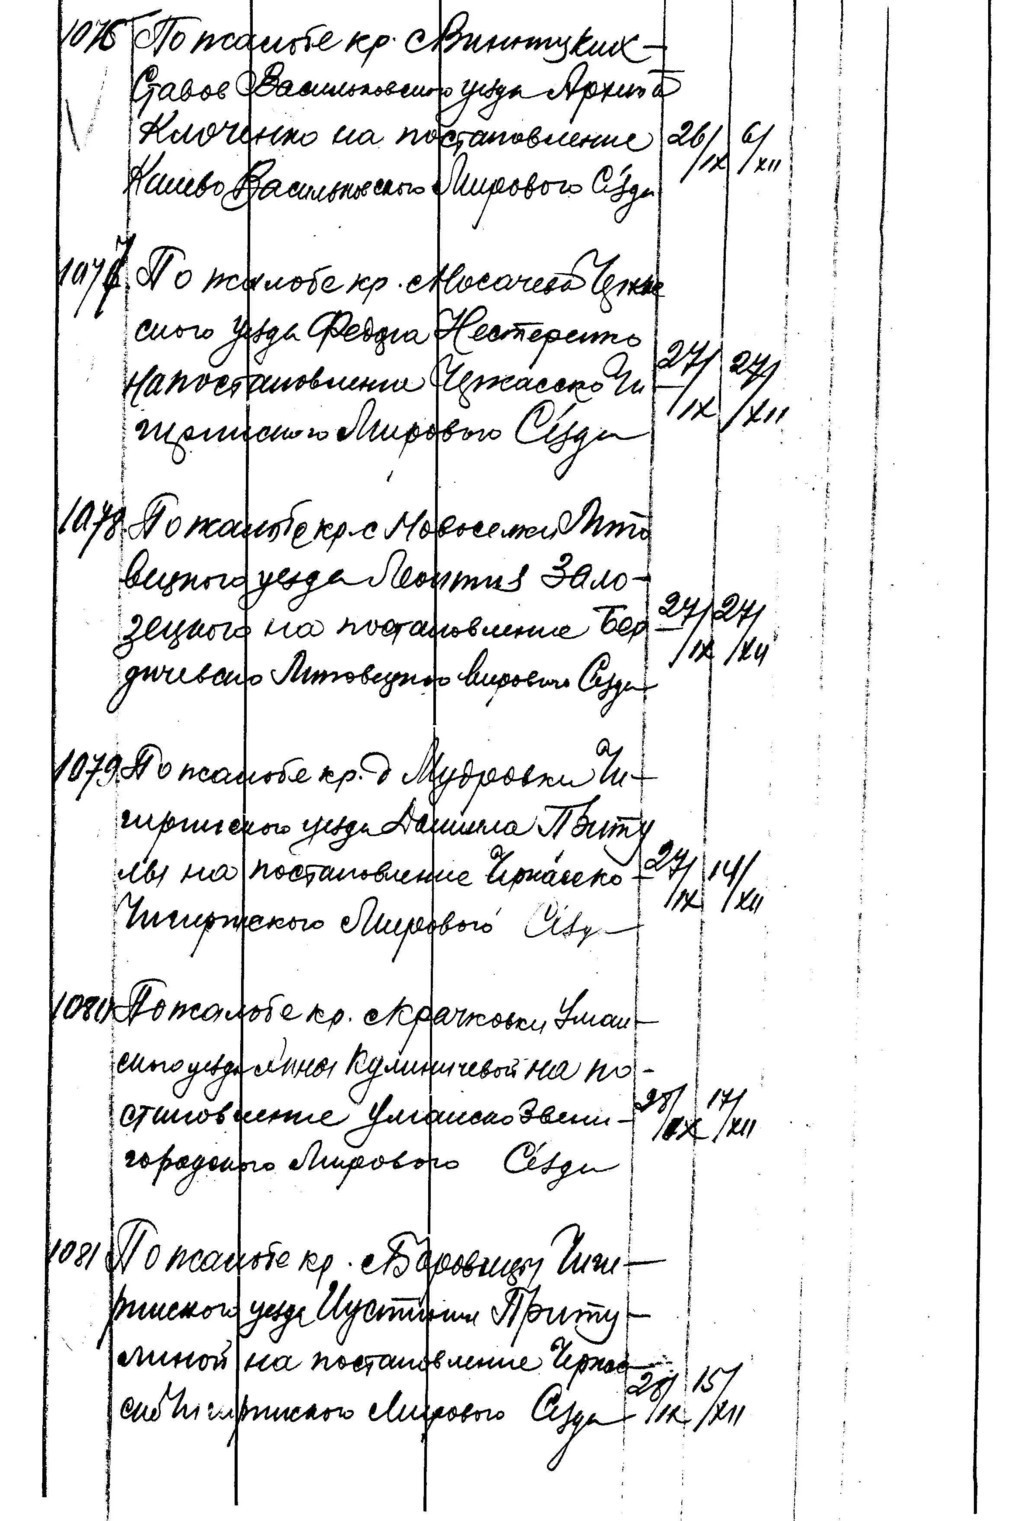 1076 По жалобе кр. с Винницких-
Ставов Васильковского уезда Архипа
Клоченко на постановление 26/IX 6/XII
Киево Васильковского Мирового Сезда
1077 По жалобе кр. с Носачева Черкас
ского уезда Федора Нестеренко
на постановление Черкасско Чи- 27/IX 27/XII
гиринского Мирового Сезда
1078 По жалобе кр. с Новоселки Липо
вецкого уезда Леонтия Зало-
зецкого на постановление Бер- 27/IX 27/XII
дичевско Липовецкого Мирового Сезда
1079 По жалобе кр. д Мудровки Чи-
гиринского уезда Даниила Приту
лы на постановление Черкасско- 27/IX 14/XII
Чигиринского Мирового Сезда
1080 По жалобе кр. с Крачковки Уман-
ского уезда Анны Кулиничевой на по-
становление Уманско Звени- 28/IX 17/XII
городского Мирового Сезда
1081 По жалобе кр. с Боровицы Чиги-
ринского уезда Иустинии Приту-
линой на постановление Черкас-
ско Чигиринского Мирового Сезда 28/IX 15/XII